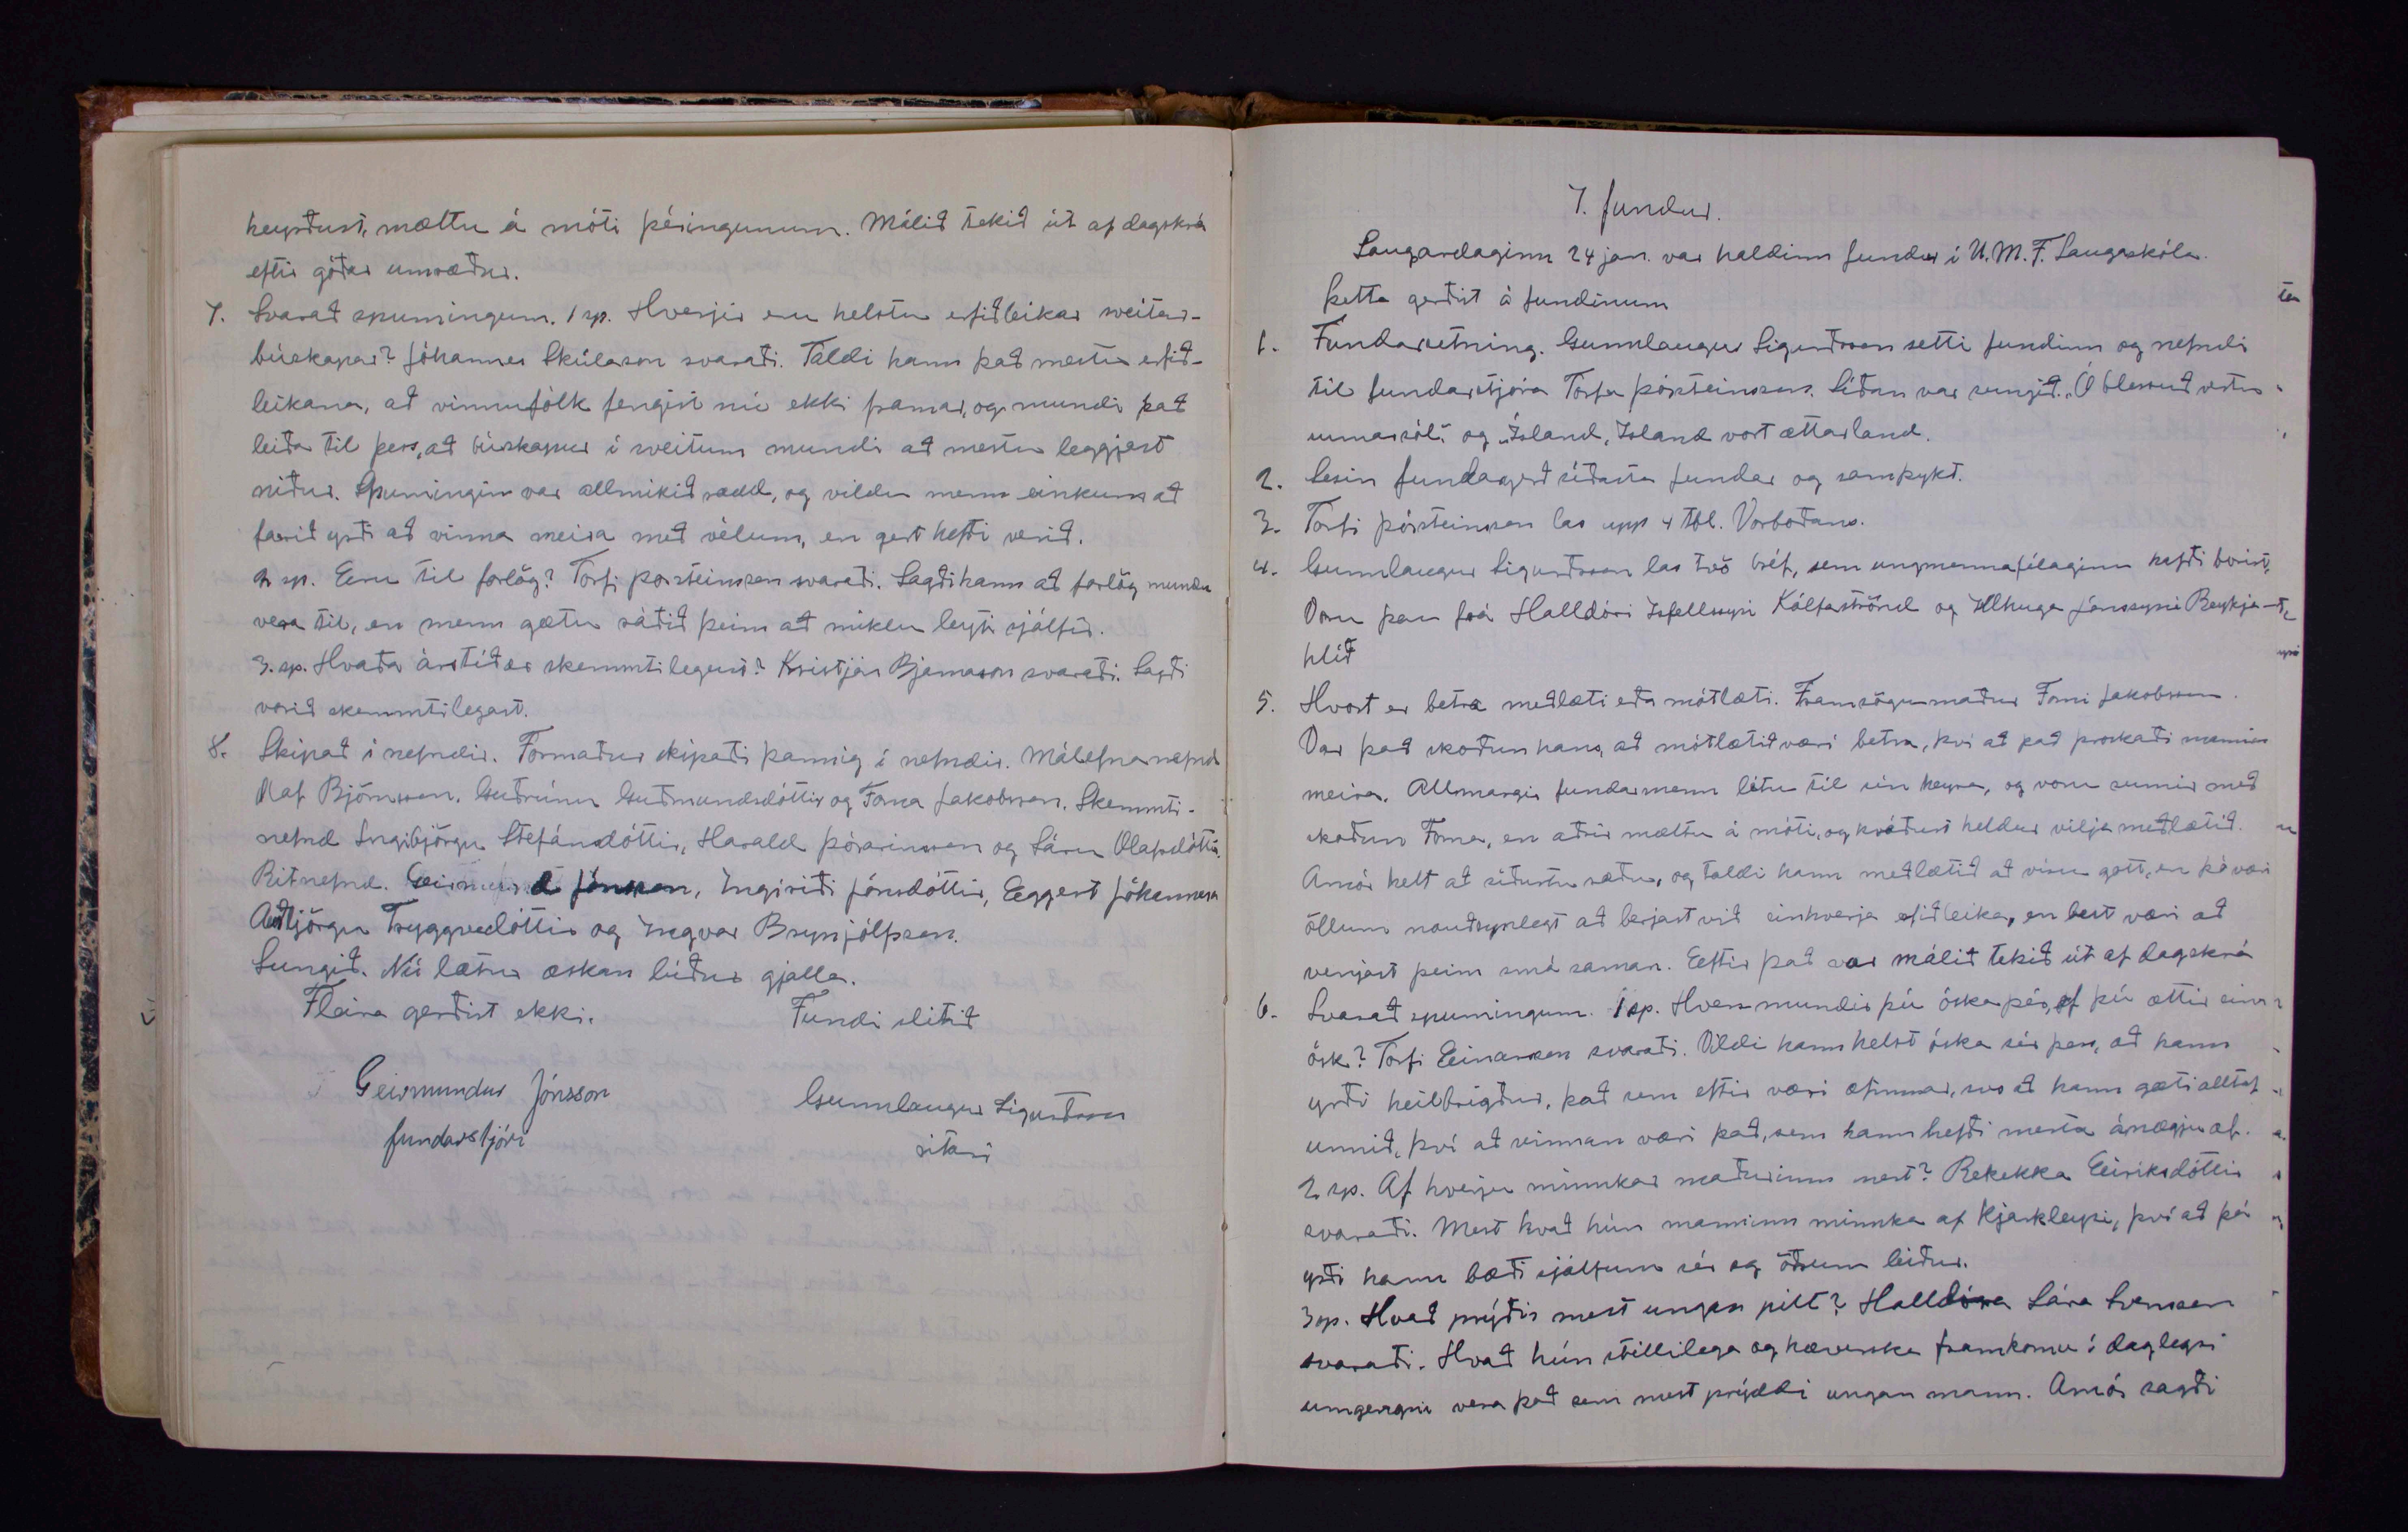 heyrðust, mæltu á móti þéringunum. Málið tekið út af dagskrá
eftir góðar umræður.
7. Svarað spurningum. 1 sp. Hverjir eru helstu erfiðleikar sveitar-
búskapar? Jóhannes Skúlason svaraði. Taldi hann það mestu erfið-
leikana, að vinnufólk fengist nú ekki framar, og mundi það
leiða til þess, að búskapur í sveitum mundi að mestu leggjast
niður. Spurningin var allmikið rædd, og vildu menn einkum að
farið yrði að vinna meira með vélum, en gert hefði verið.
2 sp. Eru til forlög? Torfi Þorsteinsson svaraði. Sagði hann að forlög mundu
vera til, en menn gætu ráðið þeim að miklu leyti sjálfir.
3. sp. Hvaða árstíð er skemmtilegust? Kristján Bjarnason svaraði. Sagði
vorið skemmtilegast.
8. Skipað í nefndir. Formaður skipaði þannig í nefndir. Málefnanefnd
Olaf Björnsson. Guðrúnu Guðmundsdóttir og Forna Jakobsson. Skemmti-
nefnd Ingibjörgu Stefánsdóttir, Harald Þórarinsson og Sáru Olafsdóttir.
Ritnefnd. Geirmund Jónsson, Ingiriði Jónsdóttir, Eggert Jóhannesson
Auðbjörgu Tryggvadóttir og Ingvar Brynjólfsson.
Sungið. Nú lætur æskan líður gjalla.
Fleira gerðist ekki. Fundi slitið
Geirmundur Jónsson
fundarstjóri
Gunnlaugur Sigurðsson
ritari
7. fundur.
Laugardaginn 24 jan. var haldinn fundur í U.M.F. Laugaskóla.
Þetta gerðist á fundinum
1. Fundarsetning. Gunnlaugur Sigurðsson setti fundinn og nefndi
til fundarstjóra Torfa Þórsteinsson. Síðan var sungið. „Ó blessuð vertu
sumarsól" og „Ísland, Ísland vort ættarland.
2. Lesin fundagerð síðasta fundar og samþykt.
3. Torfi Þórsteinsson las upp 4 tbl. Vorboðans.
4. Gunnlaugur Sigurðsson las tvö bréf, sem ungmennafélaginu hafði borist.
Voru þau frá Halldóri Isfellssyni Kálfaströnd og Illhuga Jónssyni Reykja-
hlíð
5. Hvort er betra meðlæti eða mótlæti. Framsögumaður Forni Jakobsson.
Var það skoðun hans, að mótlætið væri betra, því að það þroskaði mannin
meira. Allmargir fundarmenn létu til sín heyra, og voru sumir með
skoðun Forna, en aðrir mæltu á móti, og kváðust heldur vilja meðlætið.
Arnór helt að síðustu ræðu, og taldi hann meðlætið að vísu gott, en þó væri
öllum nauðsynlegt að berjast við einhverja erfiðleika, en best væri að
venjast þeim smá saman. Eftir það var málið tekið út af dagskrá
6. Svarað spurningum. 1 sp. Hvers mundir þú óska þér, ef þú ættir eina
ósk? Torfi Einarsson svaraði. Vildi hann helst óska sér þess, að hann
yrði heilbrigður, það sem eftir væri æfinnar, svo að hann gæti alltaf
unnið, því að vinnan væri það, sem hann hefði mesta ánægju af.
2 sp. Af hverju minnkar maðurinn mest? Rekekka Eiriksdóttir
svaraði. Mest kvað hún manninn minnka af kjarkleysi, því að þá
yrði hann bæði sjálfum sér og öðrum leiður.
3 sp. Hvað prýðir mest ungan pilt? Halldóra Sára Svensson
svaraði. Kvað hún stillilega og hæverska framkomu í daglegri
umgengni vera það sem mest prýddi ungan mann. Arnór sagði